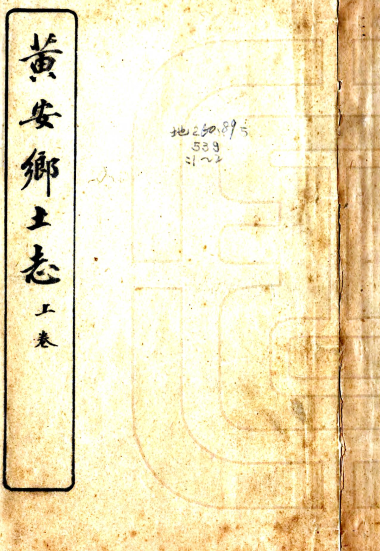 黃安鄉土志上卷
地250.895
539
:1~2